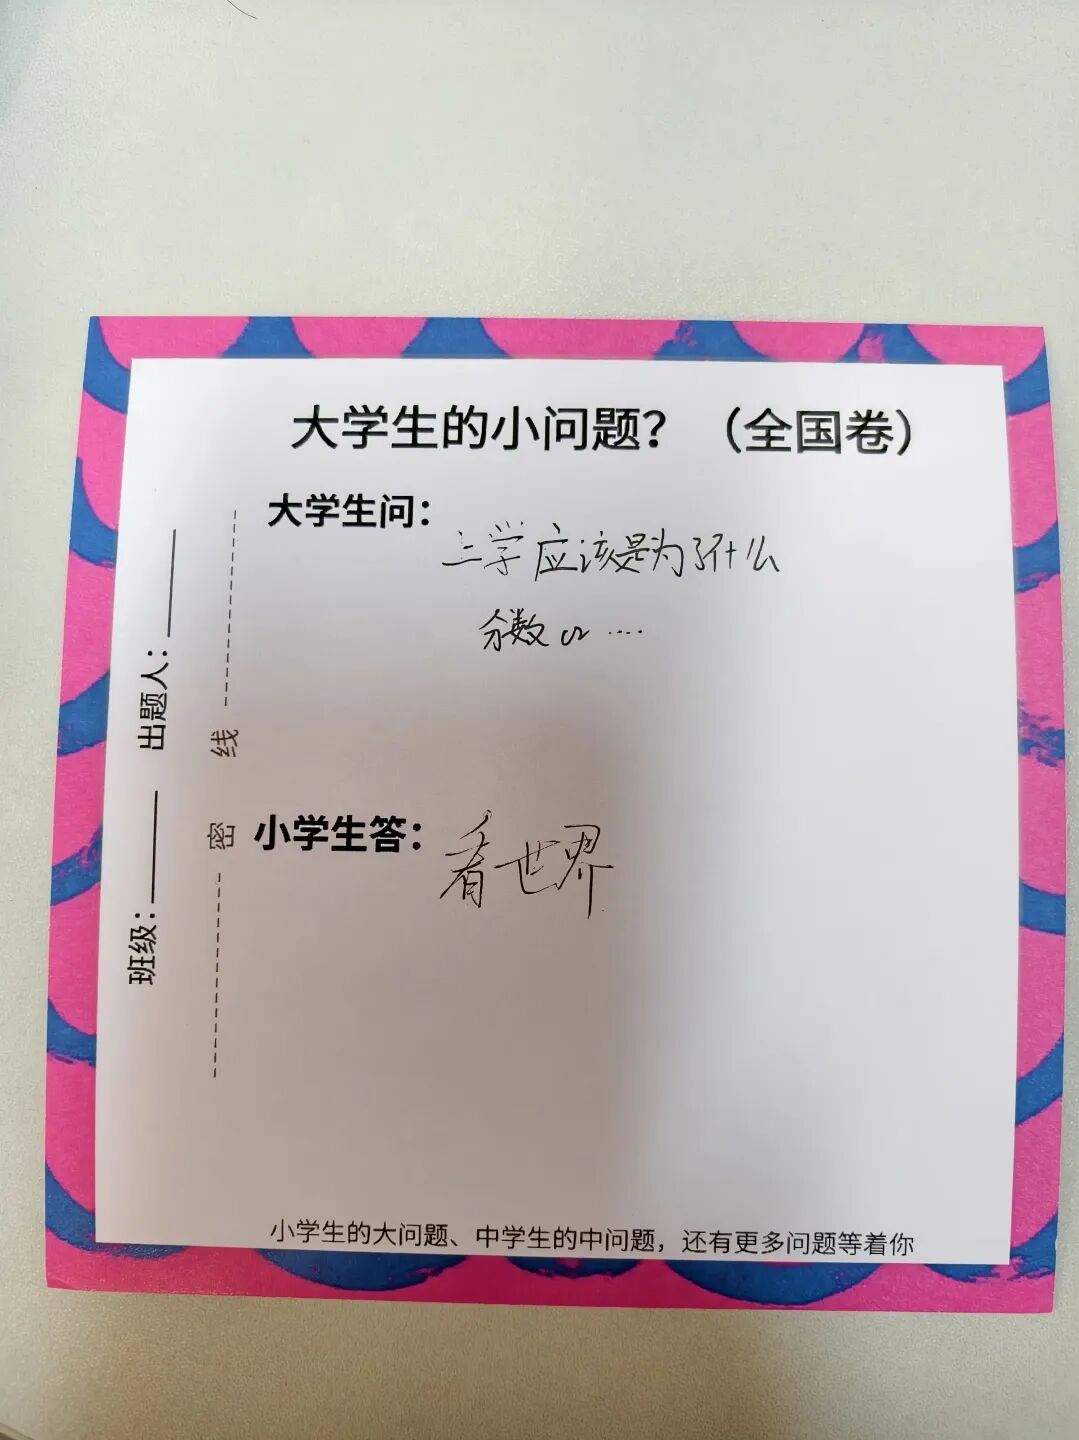 大学生的小问题？（全国卷）
大学生问：
上学应该是为了什么
分数 or ....
小学生答：
看世界
班级：
出题人：
密
线
小学生的大问题、中学生的中问题，还有更多问题等着你